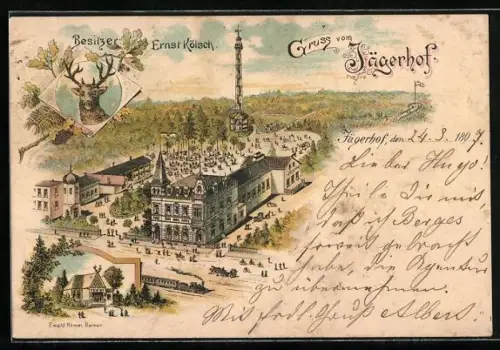 Besitzer Ernst Kölsch.
Gruss vom
Jägerhof.
Jägerhof, den 24.3.1897
Lieber Hugo!
Theile Dir mit
daß ich Berges
soweit gebracht
habe, die Agentur
zu übernehmen.
Mit frdl. Gruß Albert
Ewald Römer, Barmen